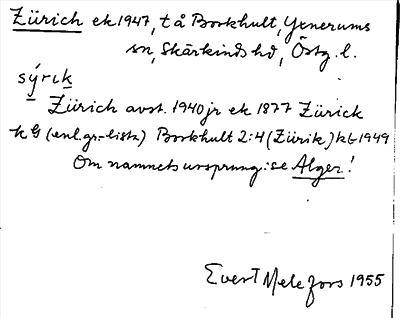 Zürich ek 1947, t å Borkhult, Yxnerums
sn, Skärkinds hd, Östg. l.
sýrik
Zürich avst. 1940 jr ek 1877 Zürick
k G (enl. gr.-lista) Borkhult 2:4 (Zürik) kt 1949
Om namnets ursprung: se Alger!
Evert Melefors 1955